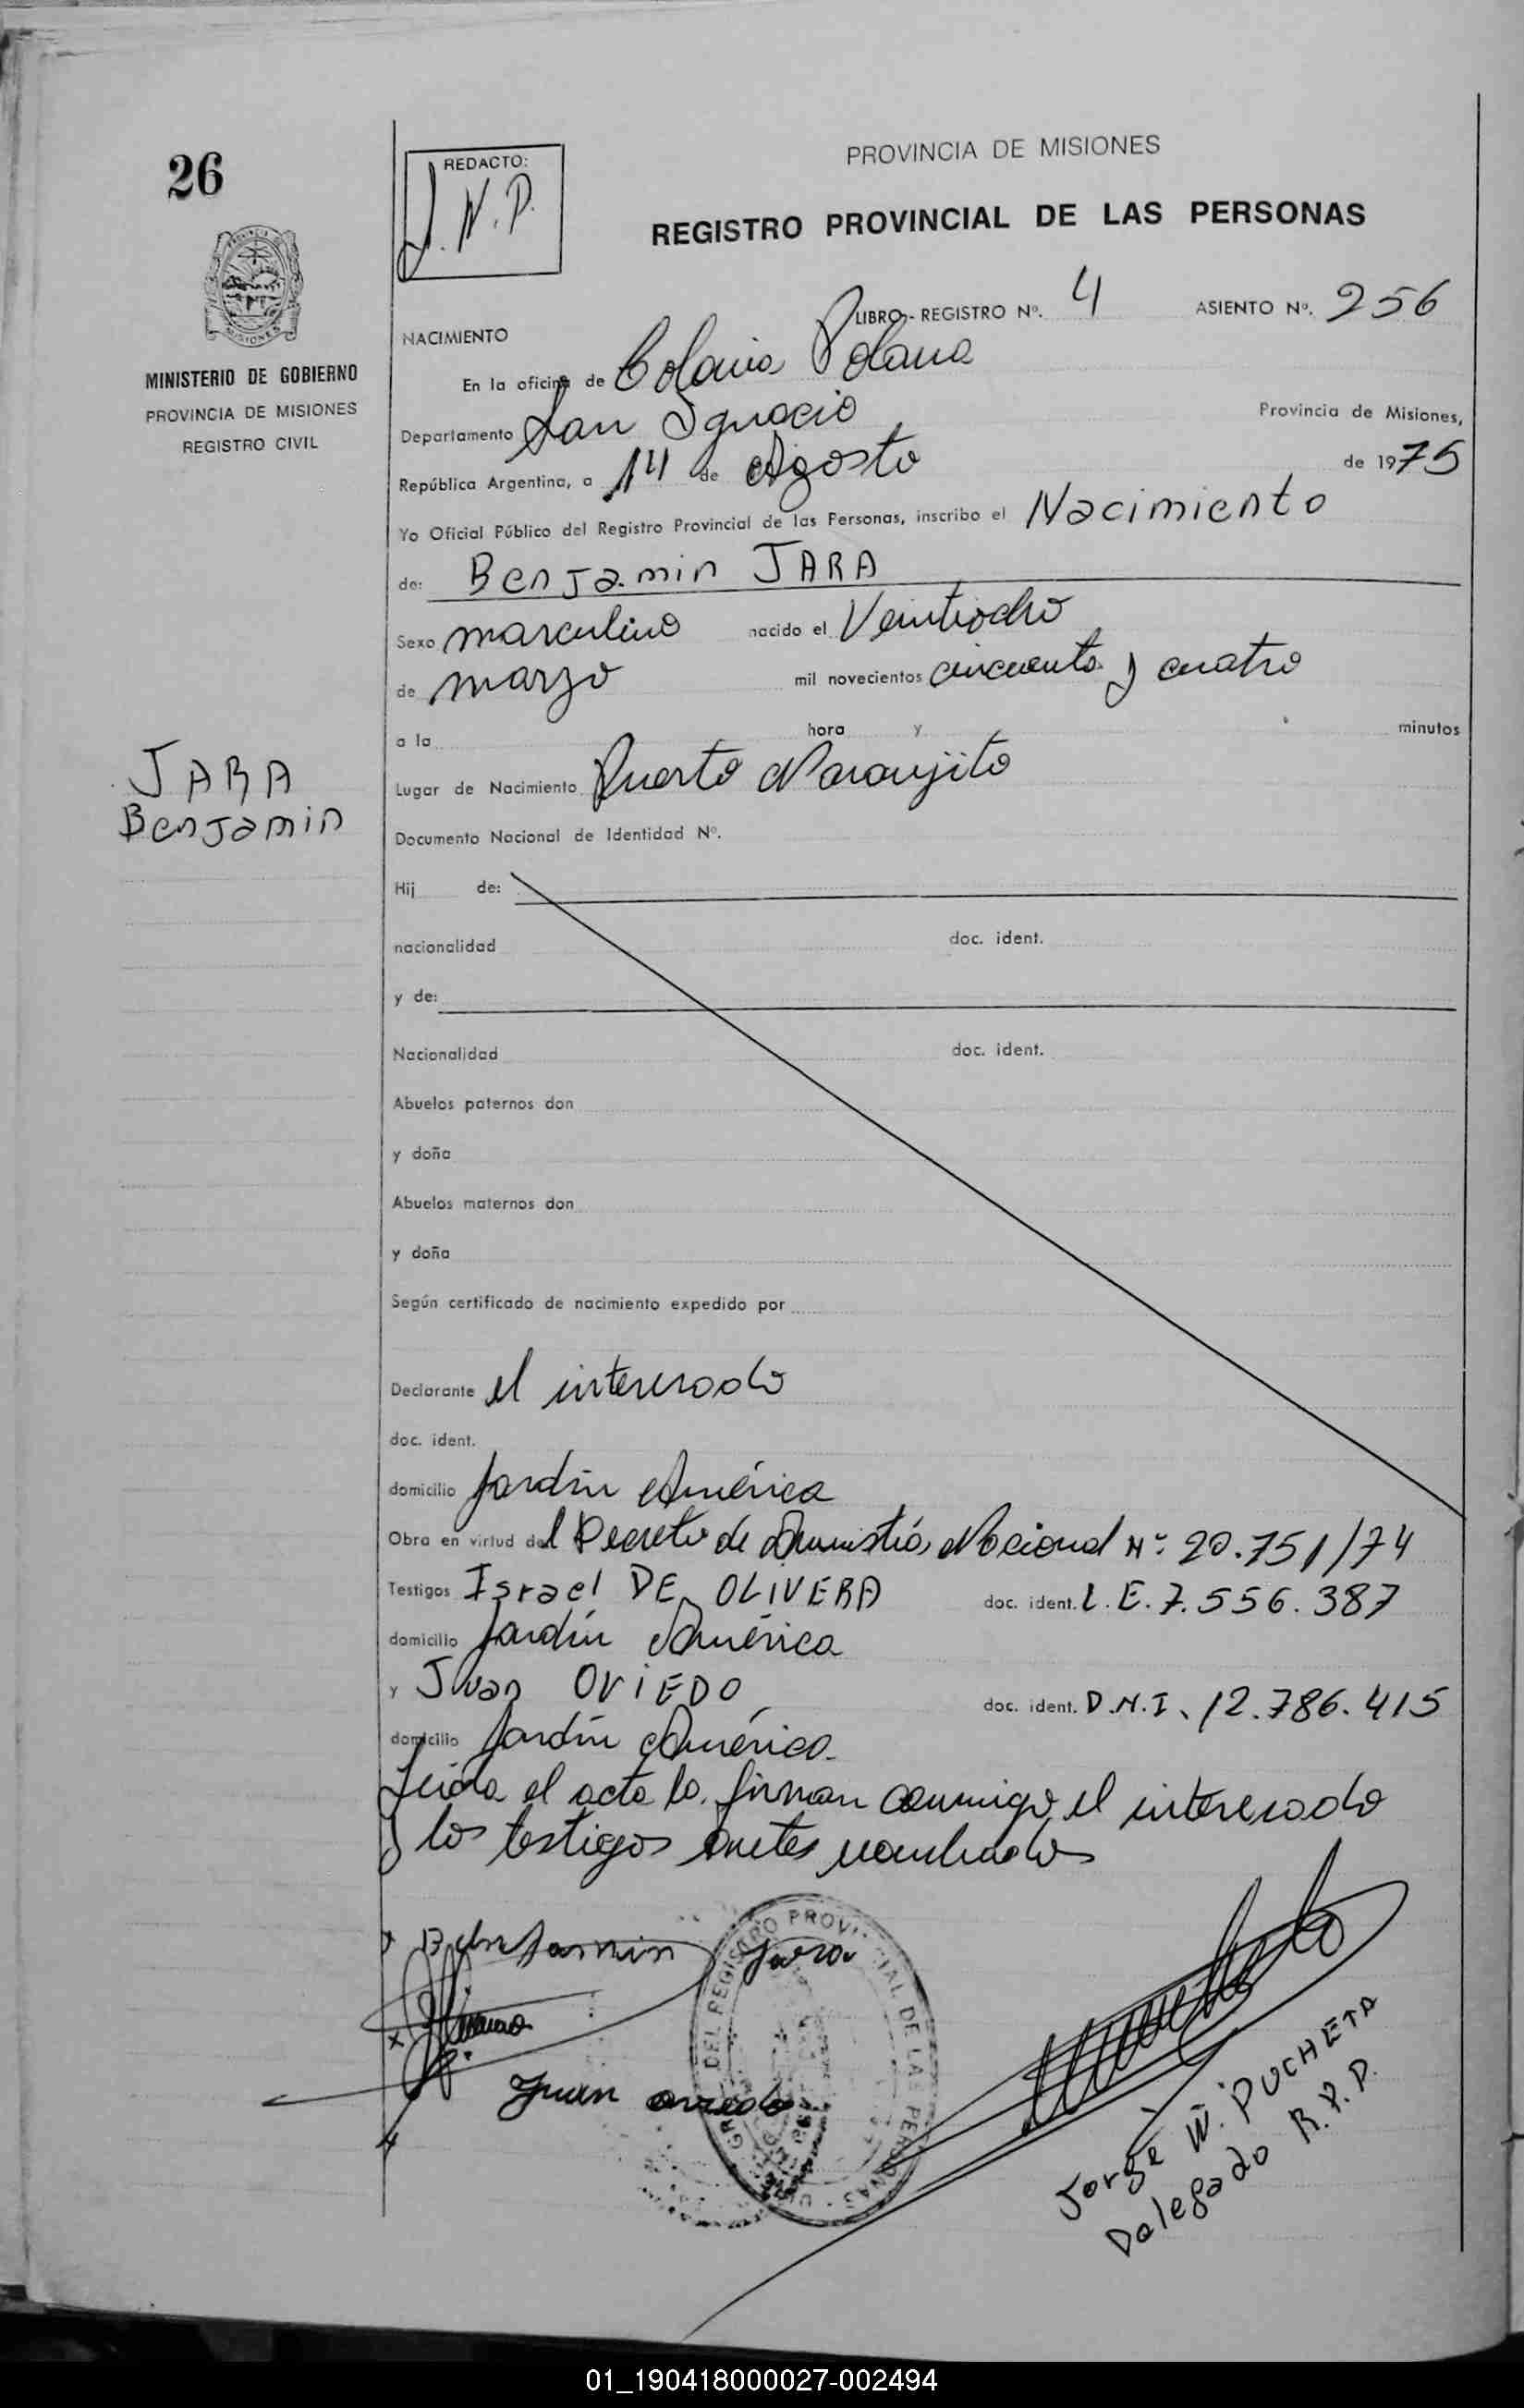 26
REDACTO:
J. W. P.
PROVINCIA DE MISIONES
REGISTRO PROVINCIAL DE LAS PERSONAS
MINISTERIO DE GOBIERNO
PROVINCIA DE MISIONES
REGISTRO CIVIL
LIBRO - REGISTRO Nº. 4 ASIENTO Nº. 256
NACIMIENTO
En la oficina de Colonia Polana
Departamento San Ignacio Provincia de Misiones,
República Argentina, a 14 de Agosto de 1975
Yo Oficial Público del Registro Provincial de las Personas, inscribo el Nacimiento
de: Benjamin JARA
Sexo masculino nacido el Veintiocho
de marzo mil novecientos cincuenta y cuatro
a la hora y minutos
JARA
Benjamin
Lugar de Nacimiento Puerto Naranjito
Documento Nacional de Identidad Nº.
Hij de:
nacionalidad doc. ident.
y de:
Nacionalidad doc. ident.
Abuelos paternos don
y doña
Abuelos maternos don
y doña
Según certificado de nacimiento expedido por
Declarante el interesado
doc. ident.
domicilio Jardín América
Obra en virtud del Decreto de Amnistía Nacional Nº 20.751/74
Testigos Israel DE OLIVERA doc. ident. L.E. 7.556.387
domicilio Jardín América
y Juan OVIEDO doc. ident. D.N.I. 12.786.415
domicilio Jardín América.
Leída el acta la firman conmigo el interesado
y los testigos antes nombrados
Benjamin Jara
Juan oviedo
DEL REGISTRO PROVINCIAL DE LAS PERSONAS
Jorge W. PUCHETA
Delegado R.P.P.
01_190418000027-002494